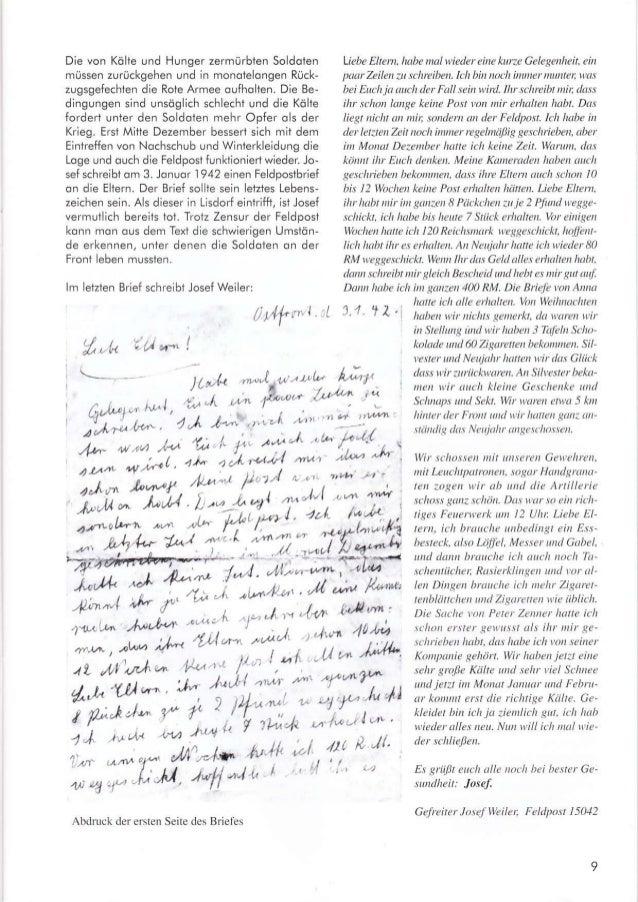 Die von Kälte und Hunger zermürbten Soldaten
müssen zurückgehen und in monatelangen Rück-
zugsgefechten die Rote Armee aufhalten. Die Be-
dingungen sind unsäglich schlecht und die Kälte
fordert unter den Soldaten mehr Opfer als der
Krieg. Erst Mitte Dezember bessert sich mit dem
Eintreffen von Nachschub und Winterkleidung die
Lage und auch die Feldpost funktioniert wieder. Jo-
sef schreibt am 3. Januar 1942 einen Feldpostbrief
an die Eltern. Der Brief sollte sein letztes Lebens-
zeichen sein. Als dieser in Lisdorf eintrifft, ist Josef
vermutlich bereits tot. Trotz Zensur der Feldpost
kann man aus dem Text die schwierigen Umstän-
de erkennen, unter denen die Soldaten an der
Front leben mussten.
Im letzten Brief schreibt Josef Weiler:
Ostfront. d 3.1.42.
Liebe Eltern!
Habe mal wieder kurze
Gelegenheit, Euch ein paar Zeilen zu
schreiben. Ich bin noch immer mun-
ter was bei Euch ja auch der Fall
sein wird. Ihr schreibt mir das ihr
schon lange keine Post von mir er-
halten habt. Das liegt nicht an mir
sondern an der Feldpost. Ich habe
in letzter Zeit noch immer regelmäßig
geschrieben, im Monat Dezember
hatte ich keine Zeit. Warum, das
könnt ihr ja Euch denken. Meine Kame-
raden haben auch geschrieben bekom-
men, das ihre Eltern auch schon 10 bis
12 Wochen keine Post erhalten hätten.
Liebe Eltern, ihr habt mir im ganzen
8 Päckchen zu je 2 Pfund weggeschickt
ich habe bis heute 7 Stück erhalten.
Vor einigen Wochen hatte ich 120 R.M.
weggeschickt, hoffentlich habt ihr es
Abdruck der ersten Seite des Briefes
Liebe Eltern, habe mal wieder eine kurze Gelegenheit, ein
paar Zeilen zu schreiben. Ich bin noch immer munter, was
bei Euch ja auch der Fall sein wird. Ihr schreibt mir, dass
ihr schon lange keine Post von mir erhalten habt. Das
liegt nicht an mir, sondern an der Feldpost. Ich habe in
der letzten Zeit noch immer regelmäßig geschrieben, aber
im Monat Dezember hatte ich keine Zeit. Warum, das
könnt ihr Euch denken. Meine Kameraden haben auch
geschrieben bekommen, dass ihre Eltern auch schon 10
bis 12 Wochen keine Post erhalten hätten. Liebe Eltern,
ihr habt mir im ganzen 8 Päckchen zu je 2 Pfund wegge-
schickt, ich habe bis heute 7 Stück erhalten. Vor einigen
Wochen hatte ich 120 Reichsmark weggeschickt, hoffent-
lich habt ihr es erhalten. An Neujahr hatte ich wieder 80
RM weggeschickt. Wenn Ihr das Geld alles erhalten habt,
dann schreibt mir gleich Bescheid und hebt es mir gut auf.
Dann habe ich im ganzen 400 RM. Die Briefe von Anna
hatte ich alle erhalten. Von Weihnachten
haben wir nichts gemerkt, da waren wir
in Stellung und wir haben 3 Tafeln Scho-
kolade und 60 Zigaretten bekommen. Sil-
vester und Neujahr hatten wir das Glück
dass wir zurückwaren. An Silvester beka-
men wir auch kleine Geschenke und
Schnaps und Sekt. Wir waren etwa 5 km
hinter der Front und wir hatten ganz an-
ständig das Neujahr angeschossen.
Wir schossen mit unseren Gewehren,
mit Leuchtpatronen, sogar Handgrana-
ten zogen wir ab und die Artillerie
schoss ganz schön. Das war so ein rich-
tiges Feuerwerk um 12 Uhr. Liebe El-
tern, ich brauche unbedingt ein Ess-
besteck, also Löffel, Messer und Gabel,
und dann brauche ich auch noch Ta-
schentücher, Rasierklingen und vor al-
len Dingen brauche ich mehr Zigaret-
tenblättchen und Zigaretten wie üblich.
Die Sache von Peter Zenner hatte ich
schon erster gewusst als ihr mir ge-
schrieben habt, das habe ich von seiner
Kompanie gehört. Wir haben jetzt eine
sehr große Kälte und sehr viel Schnee
und jetzt im Monat Januar und Febru-
ar kommt erst die richtige Kälte. Ge-
kleidet bin ich ja ziemlich gut, ich hab
wieder alles neu. Nun will ich mal wie-
der schließen.
Es grüßt euch alle noch bei bester Ge-
sundheit: Josef.
Gefreiter Josef Weiler, Feldpost 15042
9